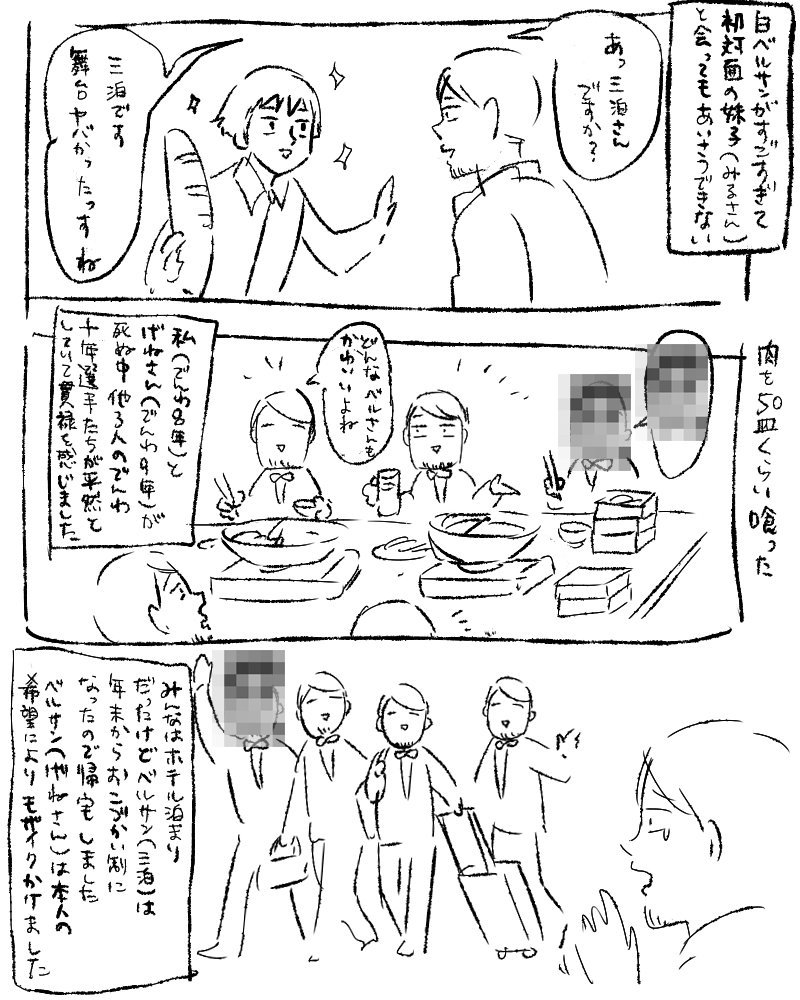 白ベルサンがすごすぎて
初対面の妹子(みるさん)
と会ってもあいさつできない
あっ三泊さん
ですか?
三泊です
舞台ヤバかったっすね
肉を50皿くらい喰った
どんなベルさんも
かわいいよね
私(でんわ8年)と
げねさん(でんわ9年)が
死ぬ中他3人のでんわ
十年選手たちが平然と
していて貫禄を感じました
みんなはホテル泊まり
だったけどベルサン(三泊)は
年末からおこづかい制に
なったので帰宅しました
ベルサン(げねさん)は本人の
希望によりモザイクかけました